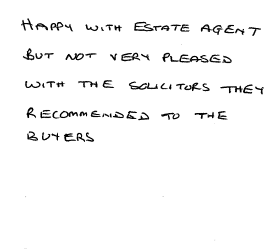 HAPPY WITH ESTATE AGENT
BUT NOT VERY PLEASED
WITH THE SOLICITORS THEY
RECOMMENDED TO THE
BUYERS